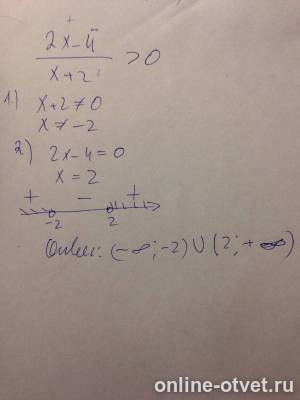 2x-4
x+2 >0
1.) x+2≠0
x≠-2
2) 2x-4=0
x=2
+ - +
-2 2
Ответ: (-∞;-2)∪(2;+∞)
online-otvet.ru